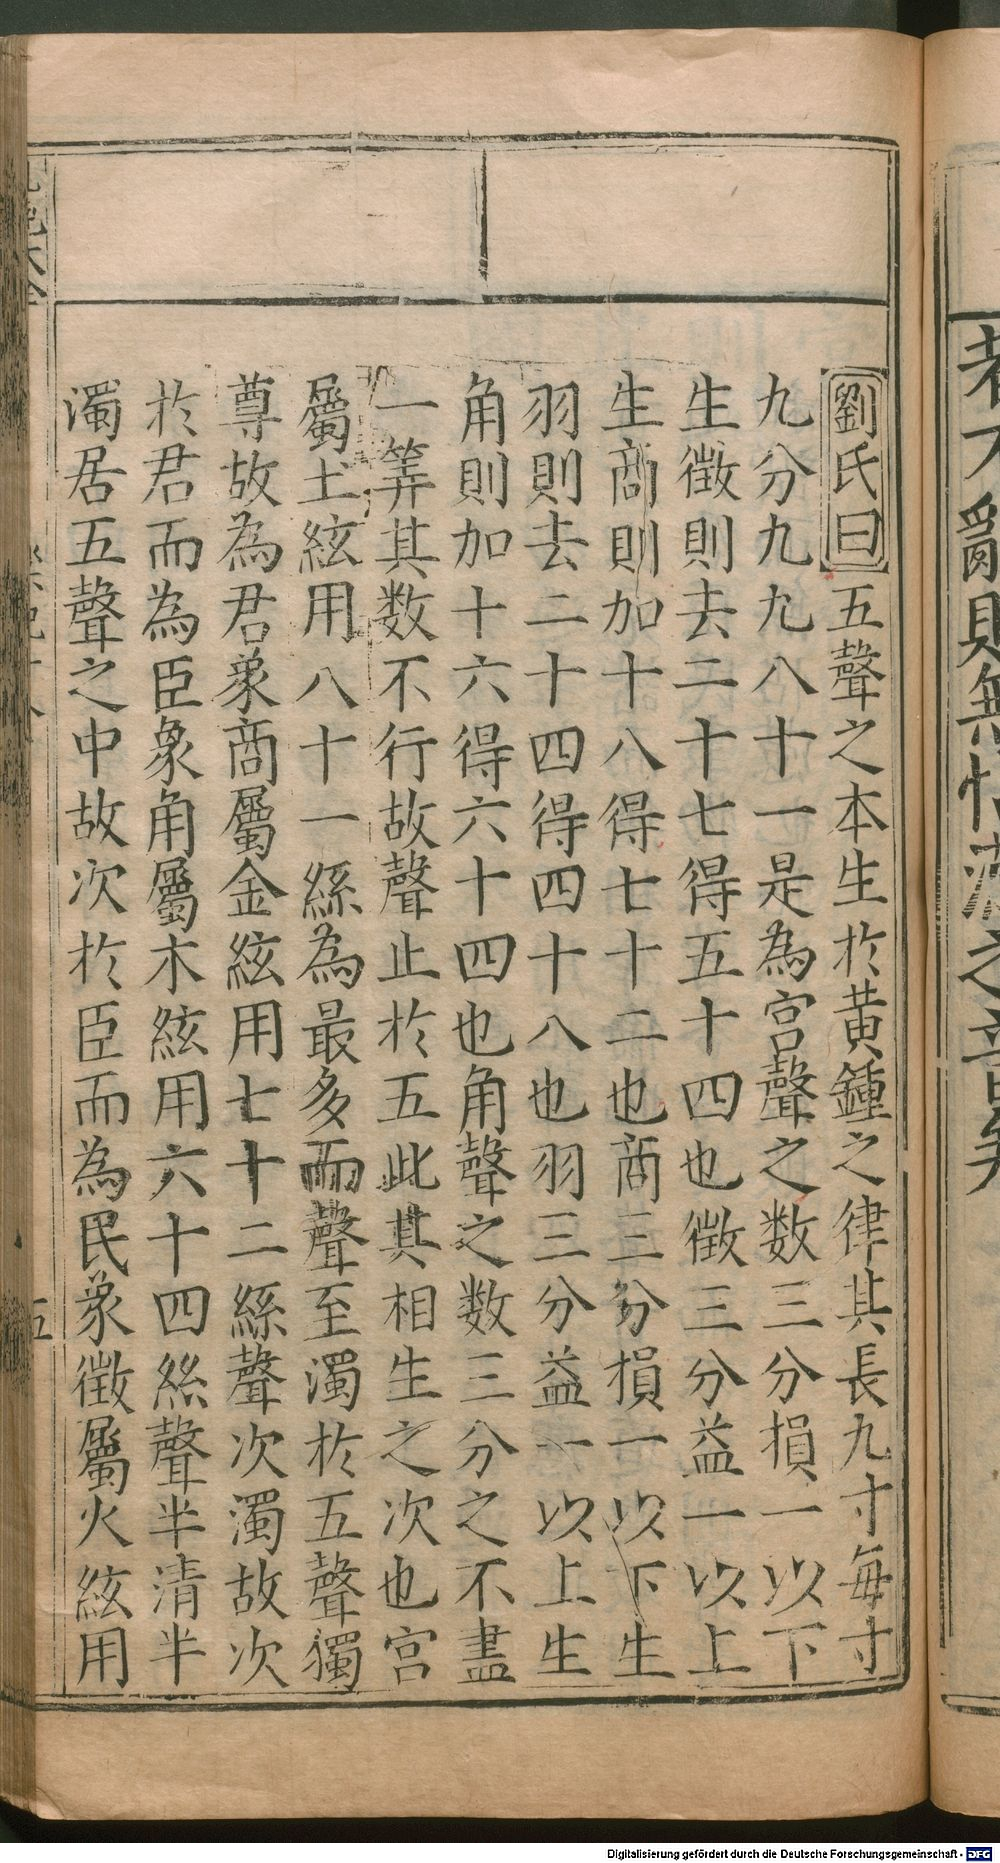 劉氏曰五聲之本生於黄鍾之律其長九寸每寸
九分九九八十一是為宫聲之数三分損一以下
生徵則去二十七得五十四也徵三分益一以上
生商則加十八得七十二也商三分損一以下生
羽則去二十四得四十八也羽三分益一以上生
角則加十六得六十四也角聲之数三分之不盡
一筭其数不行故聲止於五此其相生之次也宫
屬土絃用八十一絲為最多而聲至濁於五聲獨
尊故為君象商屬金絃用七十二絲聲次濁故次
於君而為臣象角屬木絃用六十四絲聲半清半
濁居五聲之中故次於臣而為民象徵屬火絃用
五
Digitalisierung gefördert durch die Deutsche Forschungsgemeinschaft - DFG